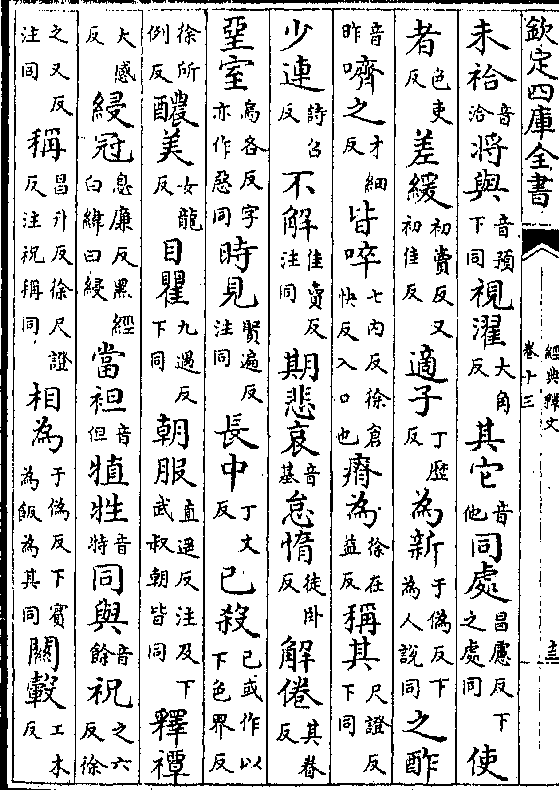 欽定四庫全書 經典釋文 卷十三
未祫音洽將與音預下同視濯大角反其它音他同處昌慮反下之處同使
者色吏反差緩初賣反又初佳反適子丁歷反為新于偽反下為人說同之酢
音昨嚌之才細反皆啐七内反徐倉快反入口也瘠為徐在益反稱其尺證反下同
少連詩召反不解佳賣反注同期悲哀音基怠惰徒卧反解倦其眷反
堊室烏各反字亦作惡同時見賢遍反注同長中丁丈反已殺已或作以下色界反
徐所例反醲美女龍反目瞿九遇反下同朝服直遥反注及下武叔朝皆同釋禫
大感反綅冠息廉反黑經白緯曰綅當袒音但犆牲音特同與音餘祝之六反徐
之又反注同稱昌升反徐尺證反注祝稱同相為于偽反下賓為飯為其同關轂工木反